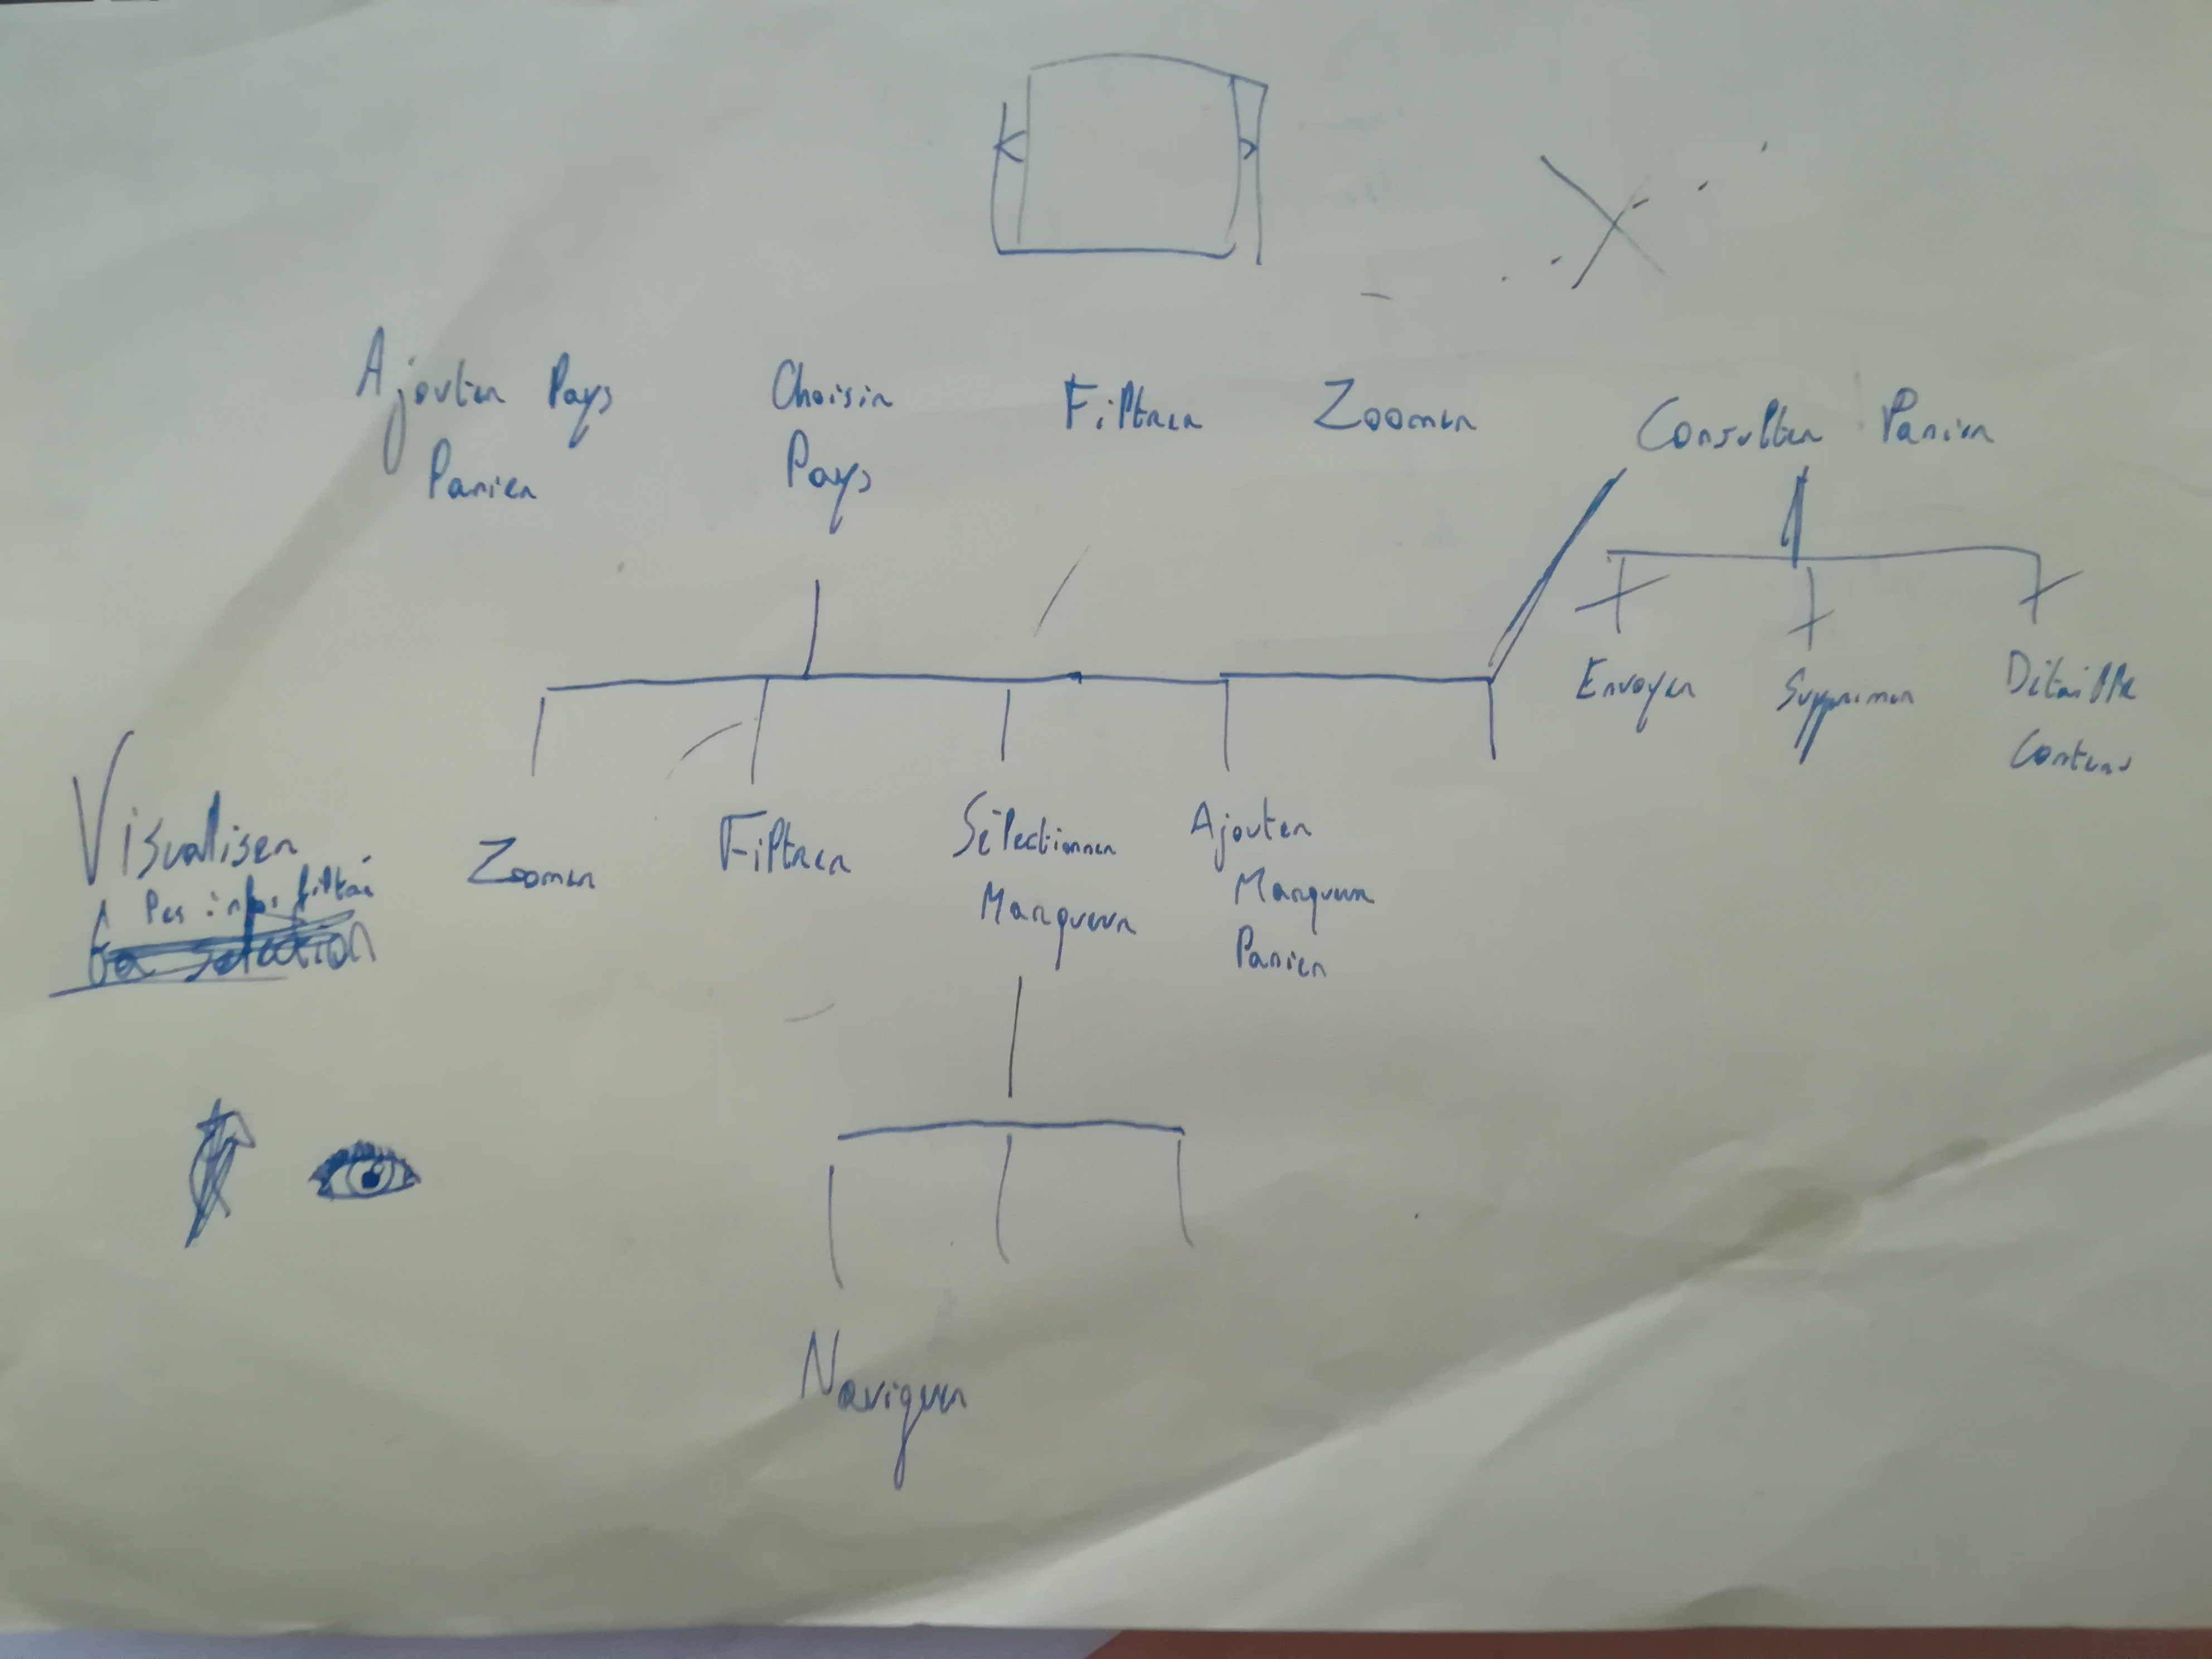 Ajouter Pays
Panier
Choisir
Pays
Filtrer
Zoomer
Consulter Panier
Envoyer
Supprimer
Détaille
Contenu
Visualiser
les infos filtré
Zoomer
Filtrer
Sélectionner
Marqueur
Ajouter
Marqueur
Panier
Naviguer